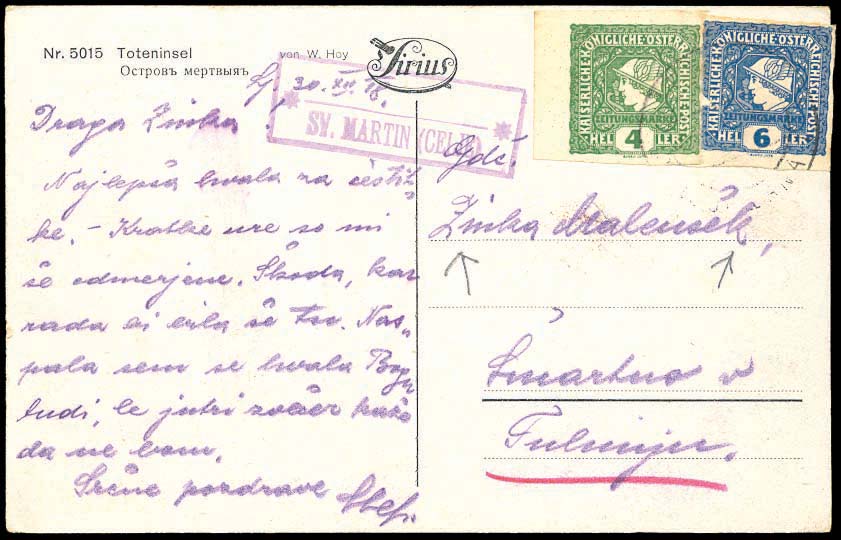 Nr. 5015 Toteninsel von W. Hoy Sirius
Островъ мертвыяъ
30. XII. 18.
SV. MARTIN (CELJE)
KAISERLICHE·KÖNIGLICHE·ÖSTERREICHISCHE·POST
ZEITUNGSMARKE
HEL 4 LER
KAISERLICHE·KÖNIGLICHE·ÖSTERREICHISCHE·POST
ZEITUNGSMARKE
HEL 6 LER
Draga Zinka!
Najlepša hvala za čestit-
ke. – Kratke ure so mi
še odmerjene. Škoda, kar
rada bi bila še tu. Nas„
pala sem se hvala Bogu
tudi, le jutri zvečer kaže
da ne bom.
Srčne pozdrave Štef.
Gdč.
Zinka Malenšek,
Šmartno v
Tuhinju.